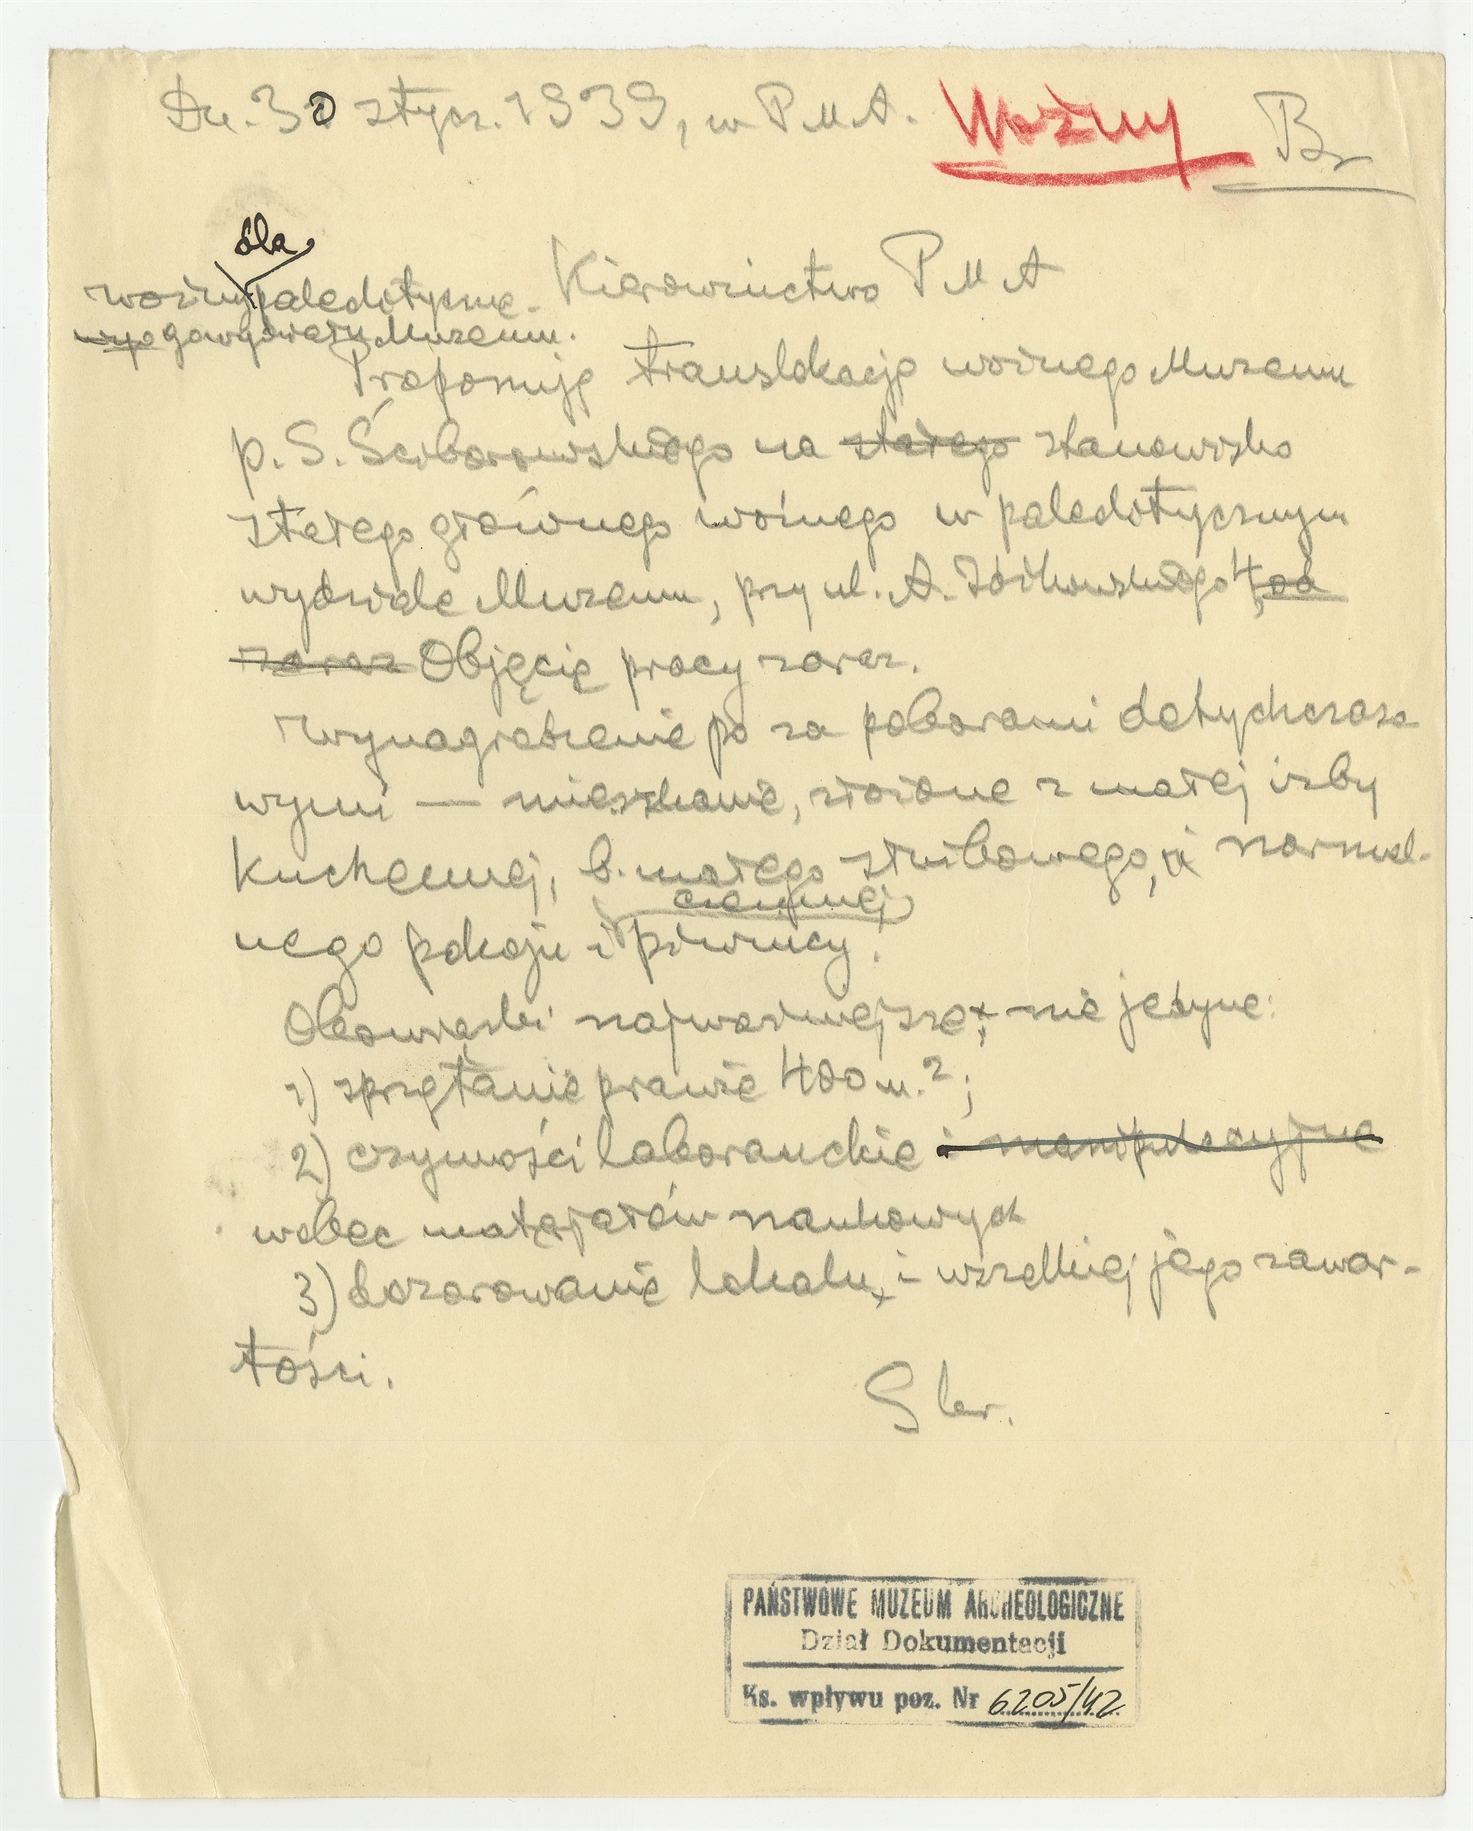 Dn. 30 stycz. 1939, w P M A. Woźny Br
dla
woźny paleolityczne-
go wydziału Muzeum.
Kierownictwo P M A
Proponuję translokację woźnego Muzeum
p. S. Ściborowskiego na stałego stanowisko
stałego głównego woźnego w paleolitycznym
wydziale Muzeum, przy ul. A. Żółkowskiego 4, od
zaraz Objęcię pracy zaraz.
Wynagrodzenie po za poborami dotychczaso
wymi — mieszkanie, złożone z małej izby
kuchennej, b. małego stubowego, i normal-
ciemnej
nego pokoju i piwnicy.
Obowiązki najważniejsze, nie jedyne:
1) sprzątanie prawie 400 m.²;
2) czynności laboranckie i manipulacyjne
wobec materjałów naukowych
3) dozorowanie lokalu, i wszelkiej jego zawar-
tości.
S kr.
PAŃSTWOWE MUZEUM ARCHEOLOGICZNE
Dział Dokumentacji
Ks. wpływu poz. Nr 6205/42